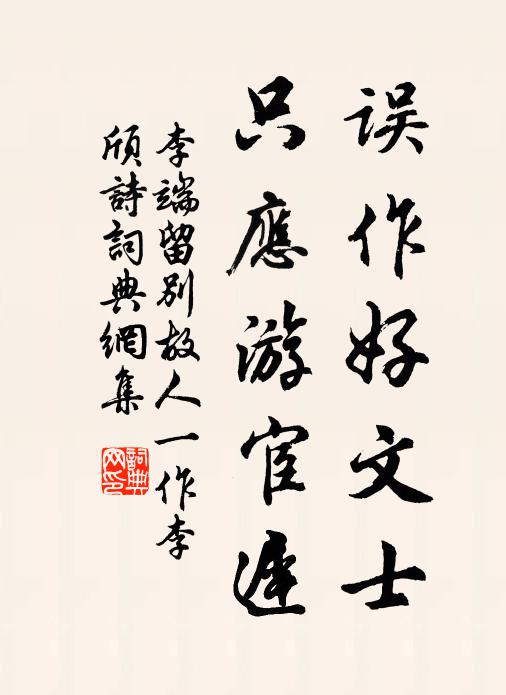 误作好文士
只應游宦遲
李端留别故人一作李
頎詩詞典網集
詞典网印